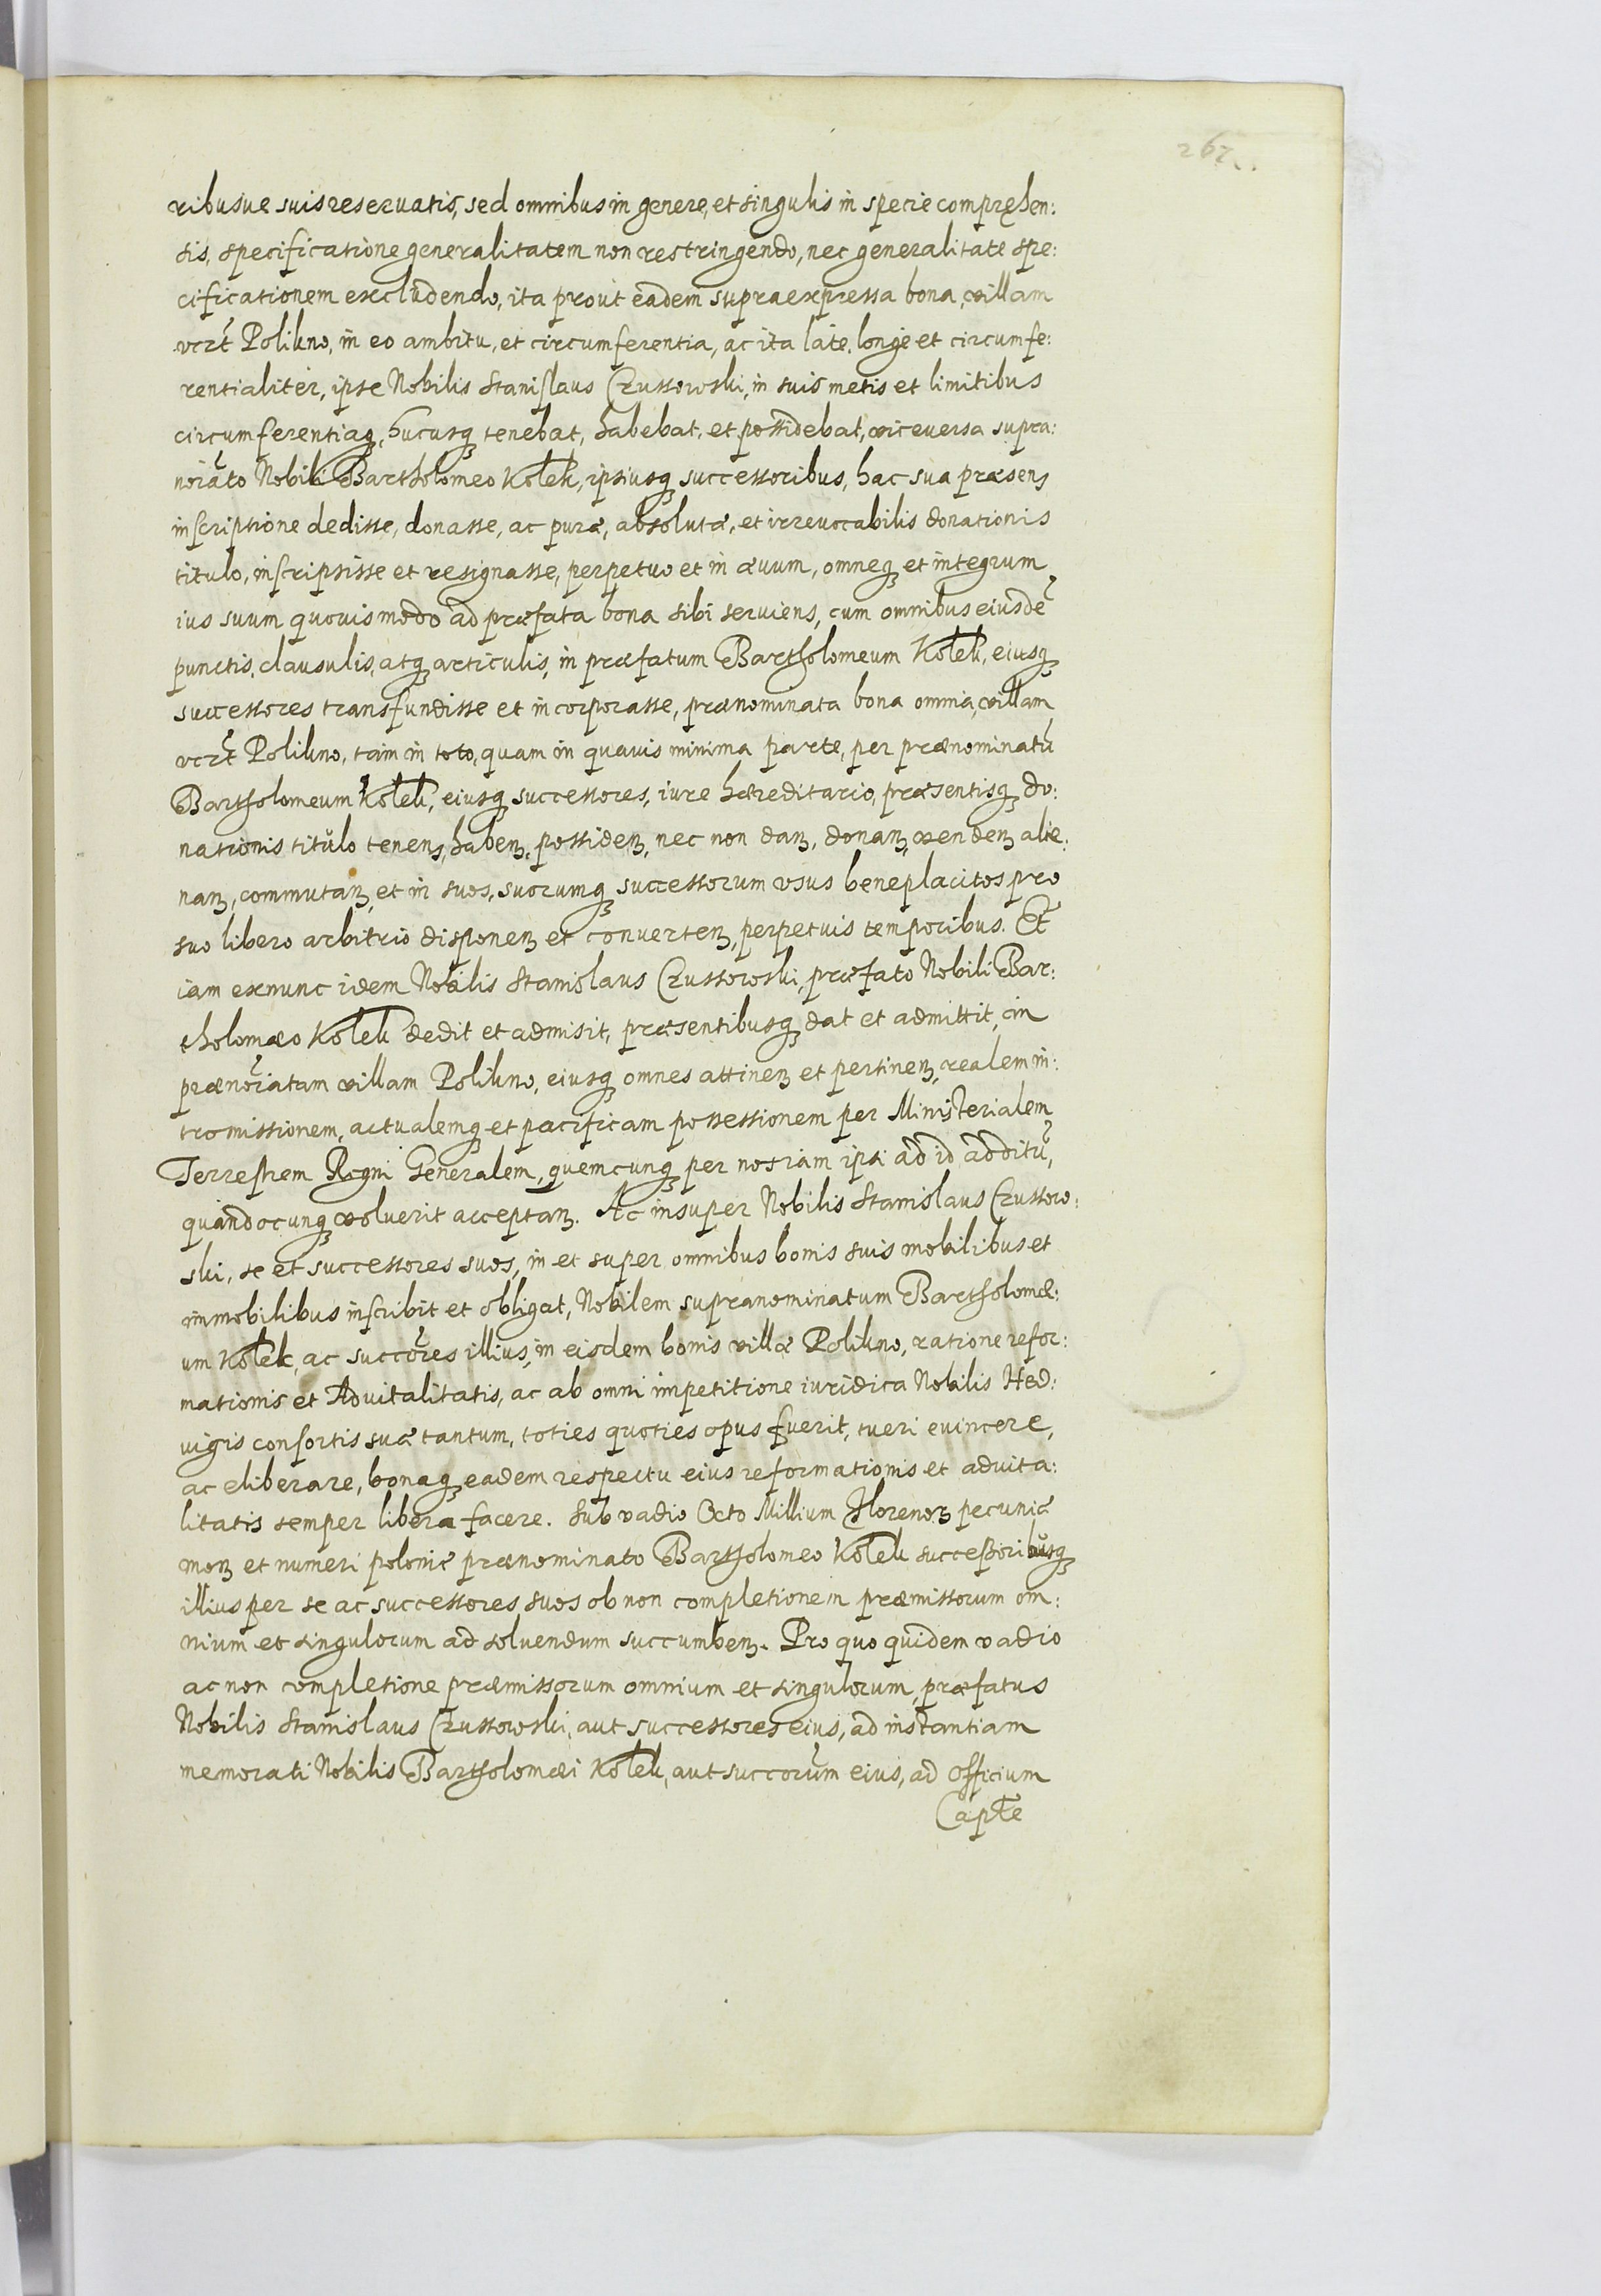 262
ribusve suis reservatis, sed omnibus in genere, et singulis in specie compręhen:
sis, specificatione generalitatem non restringendo, nec generalitate spe:
cificationem excludendo, ita prout eadem supraexpressa bona, villam
vczt Polikno, in eo ambitu, et circumferentia, ac ita late, longe et circumfe:
rentialiter, ipse Nobilis Stanislaus Czussowski, in suis metis et limitibus
circumferentiaq, hucusq tenebat, habebat, et possidebat, viceversa supra:
noiato Nobili Bartholomeo Kołek, ipsiusq successoribus, hac sua præsenz
inscriptione dedisse, donasse, ac puræ, absolutæ, et irrevocabilis donationis
titulo, inscripsisse et resignasse, perpetuo et in ævum, omneq et integrum
ius suum quovismodo ad præfata bona sibi serviens, cum omnibus eiusdē
punctis, clausulis, atq articulis, in præfatum Bartholomeum Kołek, eiusq
successores transfundisse et incorporasse, prænominata bona omnia, villam
vczt Polikno, tam in toto, quam in quavis minima parte, per prænominatū
Bartholomeum Kołek, eiusq successores, iure hæreditario, præsentisq do:
nationis titulo tenenz, habenz, possidenz, nec non danz, donanz, vendenz alie:
nanz, commutanz, et in suos, suorumq successorum usus beneplacitos pro
suo libero arbitrio disponenz et convertenz, perpetuis temporibus. Et
iam exnunc idem Nobilis Stanislaus Czussowski, præfato Nobili Bar:
tholomæo Kołek dedit et admisit, præsentibusq dat et admittit, in
prænoiatam villam Polikno, eiusq omnes attinenz et pertinenz, realem in:
tromissionem, actualemq et pacificam possessionem per Ministerialem
Terrestrem Regni Generalem, quemcunq per nos iam ipsi ad id additū,
quandocunq voluerit acceptanz. Ac insuper Nobilis Stanislaus Czussow:
ski, se et successores suos, in et super omnibus bonis suis mobilibus et
immobilibus inscribit et obligat, Nobilem supranominatum Bartholomæ:
um Kołek, ac succores illius, in eisdem bonis villæ Polikno, ratione refor:
mationis et Advitalitatis, ac ab omni impetitione iuridica Nobilis Hed:
vigis consortis suæ tantum, toties quoties opus fuerit, tueri evincere,
ac eliberare, bonaq eadem respectu eius reformationis et advita:
litatis semper libera facere. Sub vadio Octo Millium Florenoz pecuniæ
monz et numeri polonic prænominato Bartholomeo Kołek successoribusq
illius per se ac successores suos ob non completionem præmissorum om:
nium et singulorum ad solvendum succumbenz. Pro quo quidem vadio
ac non completione præmissorum omnium et singulorum, præfatus
Nobilis Stanislaus Czussowski, aut successores eius, ad instantiam
memorati Nobilis Bartholomæi Kołek, aut succorum eius, ad Officium
Capte